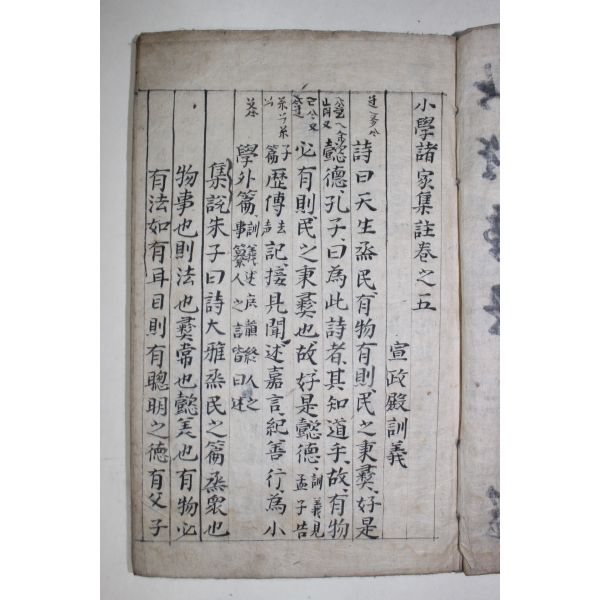 小學諸家集註卷之五
宣政殿訓義
詩曰天生烝民有物有則民之秉彝好是
懿德孔子曰為此詩者其知道乎故有物
必有則民之秉彝也故好是懿德訓義見孟子告
子篇歷傳去聲記接見聞述嘉言紀善行為小
學外篇訓義述庶韻終人之事纂人之言皆曰述
集說朱子曰詩大雅烝民之篇烝眾也
物事也則法也彝常也懿美也有物必
有法如有耳目則有聰明之德有父子